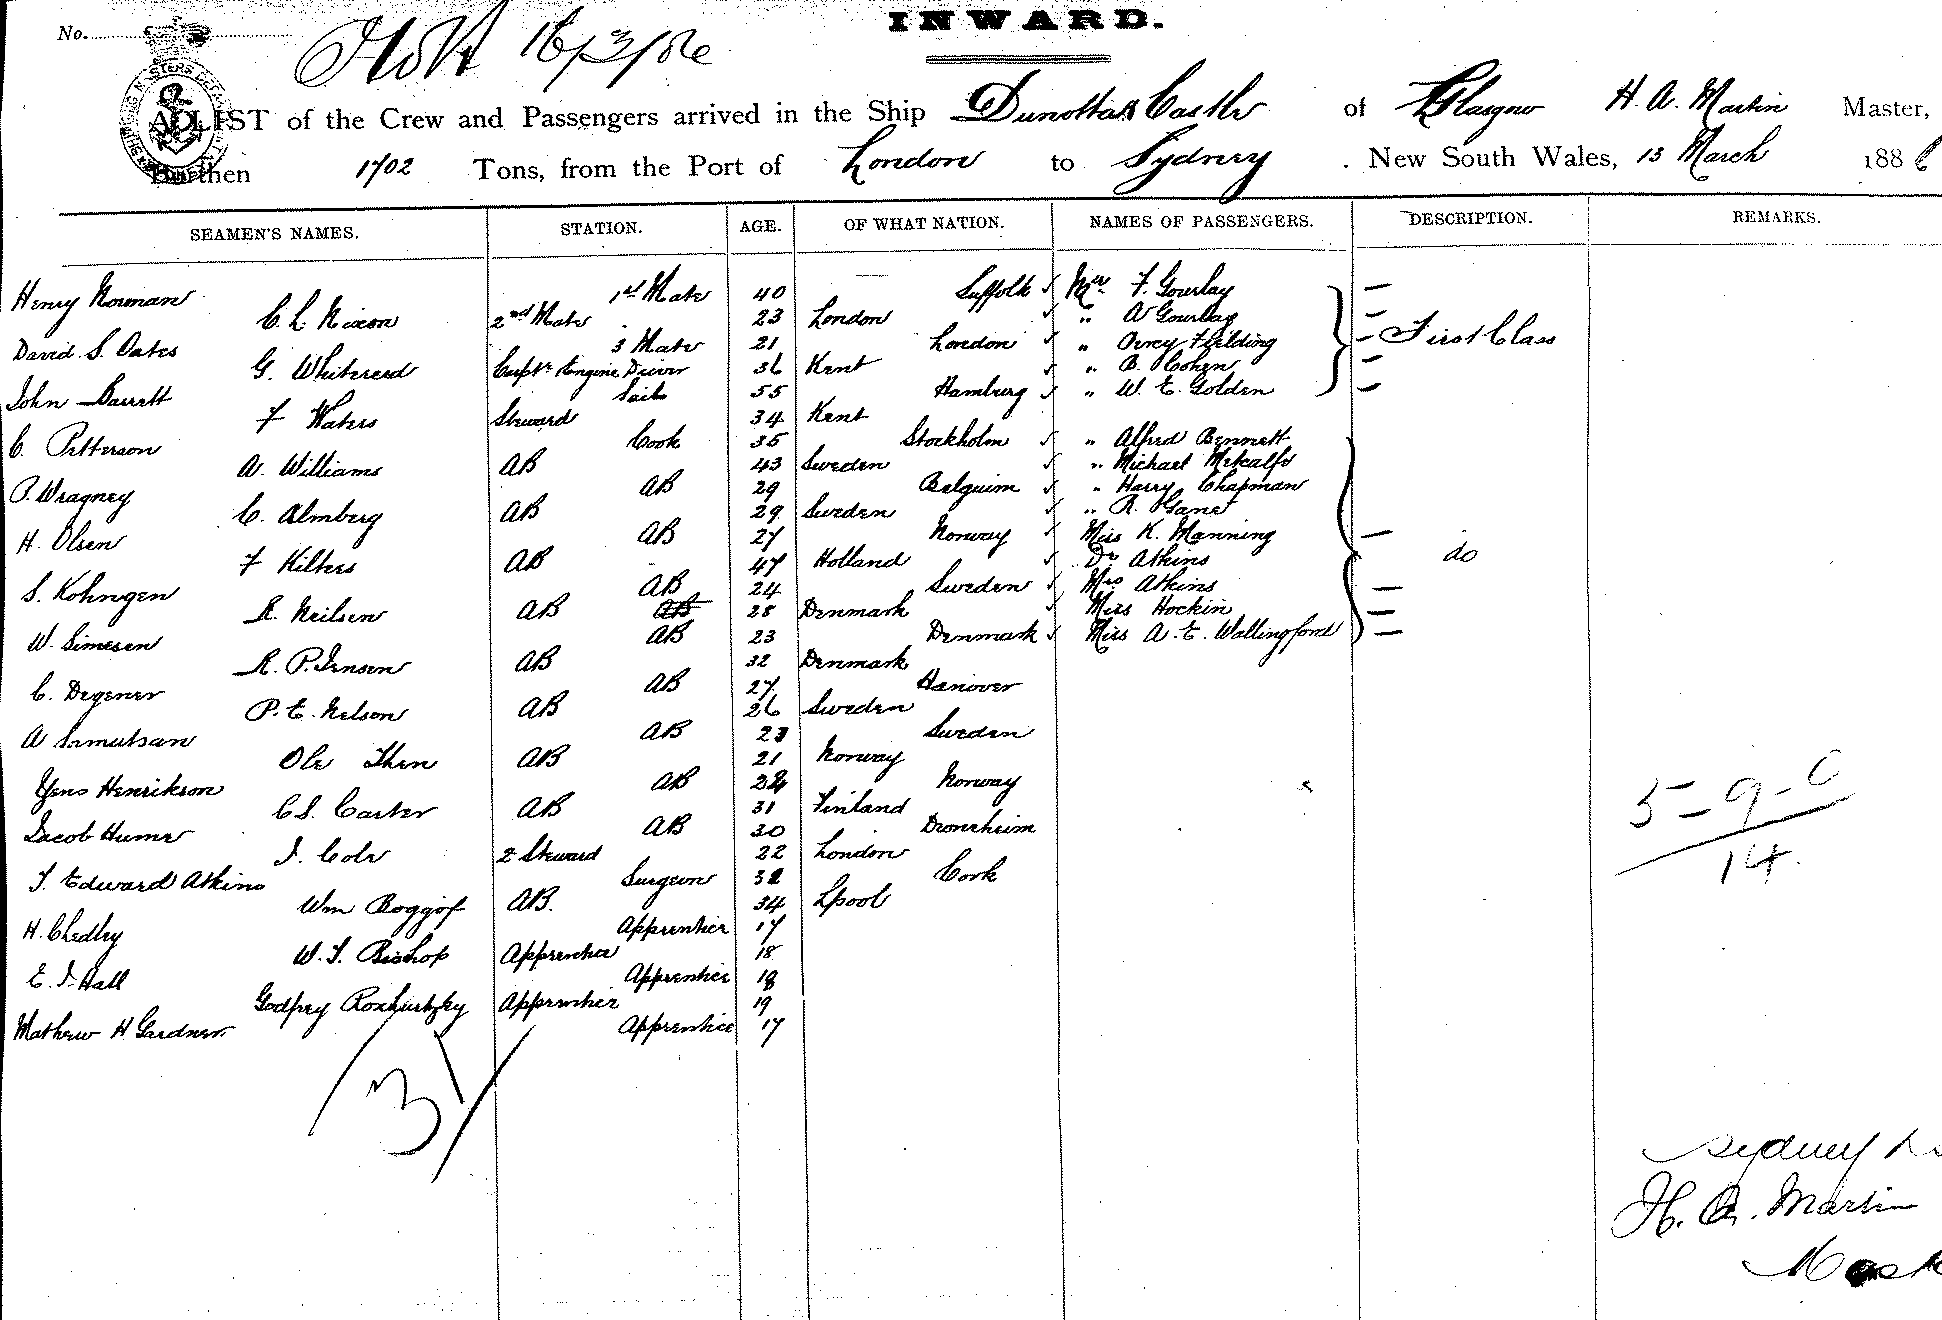 No.
16/3/86
INWARD.
A LIST of the Crew and Passengers arrived in the Ship Dunottar Castle of Glasgow H. A. Martin Master,
Burthen 1702 Tons, from the Port of London to Sydney. New South Wales, 13 March 1886
SEAMEN'S NAMES. STATION. AGE. OF WHAT NATION. NAMES OF PASSENGERS. DESCRIPTION. REMARKS.
Henry Norman 1st Mate 40 Suffolk Mr F. Gourlay
C. L. Nixon 2nd Mate 23 London " A Gourlay
David S. Oates 3 Mate 21 London " Fielding First Class
G. Whitereed Carptr Engine Driver 36 Kent " B. Cohen
John Barrett Sails 55 Hamburg " W. E. Golden
F Waters Steward 34 Kent
C. Petterson Cook 35 Stockholm " Alfred Bennett
A. Williams AB 43 Sweden " Michael Metcalfe
P. Wragney AB 29 Belguim " Harry Chapman
C. Almberg AB 29 Sweden " R. Gane
H. Olsen AB 27 Norway Miss K. Manning
F Kilters AB 47 Holland Dr Atkins do
S. Kohngen AB 24 Sweden Mrs Atkins
R. Neilsen AB AB 28 Denmark Miss Hockin
W. Simesen AB 23 Denmark Miss A. E. Wallingford
R. P. Jensen AB 32 Denmark
C. Degener AB 27 Hanover
P. E. Nelson AB 26 Sweden
A AB 23 Sweden
Ole Then AB 21 Norway
Yens Henrikson AB Norway
C S. Carter AB 31 Finland
Jacob Hume AB 30 Droneheim
J. Cole 2 Steward 22 London
T. Edward Atkins Surgeon 32 Cork
Wm Boggof AB. 34 Lpool
H. Chedley Apprentice 17
W. T. Bishop Apprentice 18
E. J. Hall Apprentice 18
Godfrey Apprentice 19
Mathew H Gardner Apprentice 17
31
5-9-0
14.
Sydney
H. A. Martin